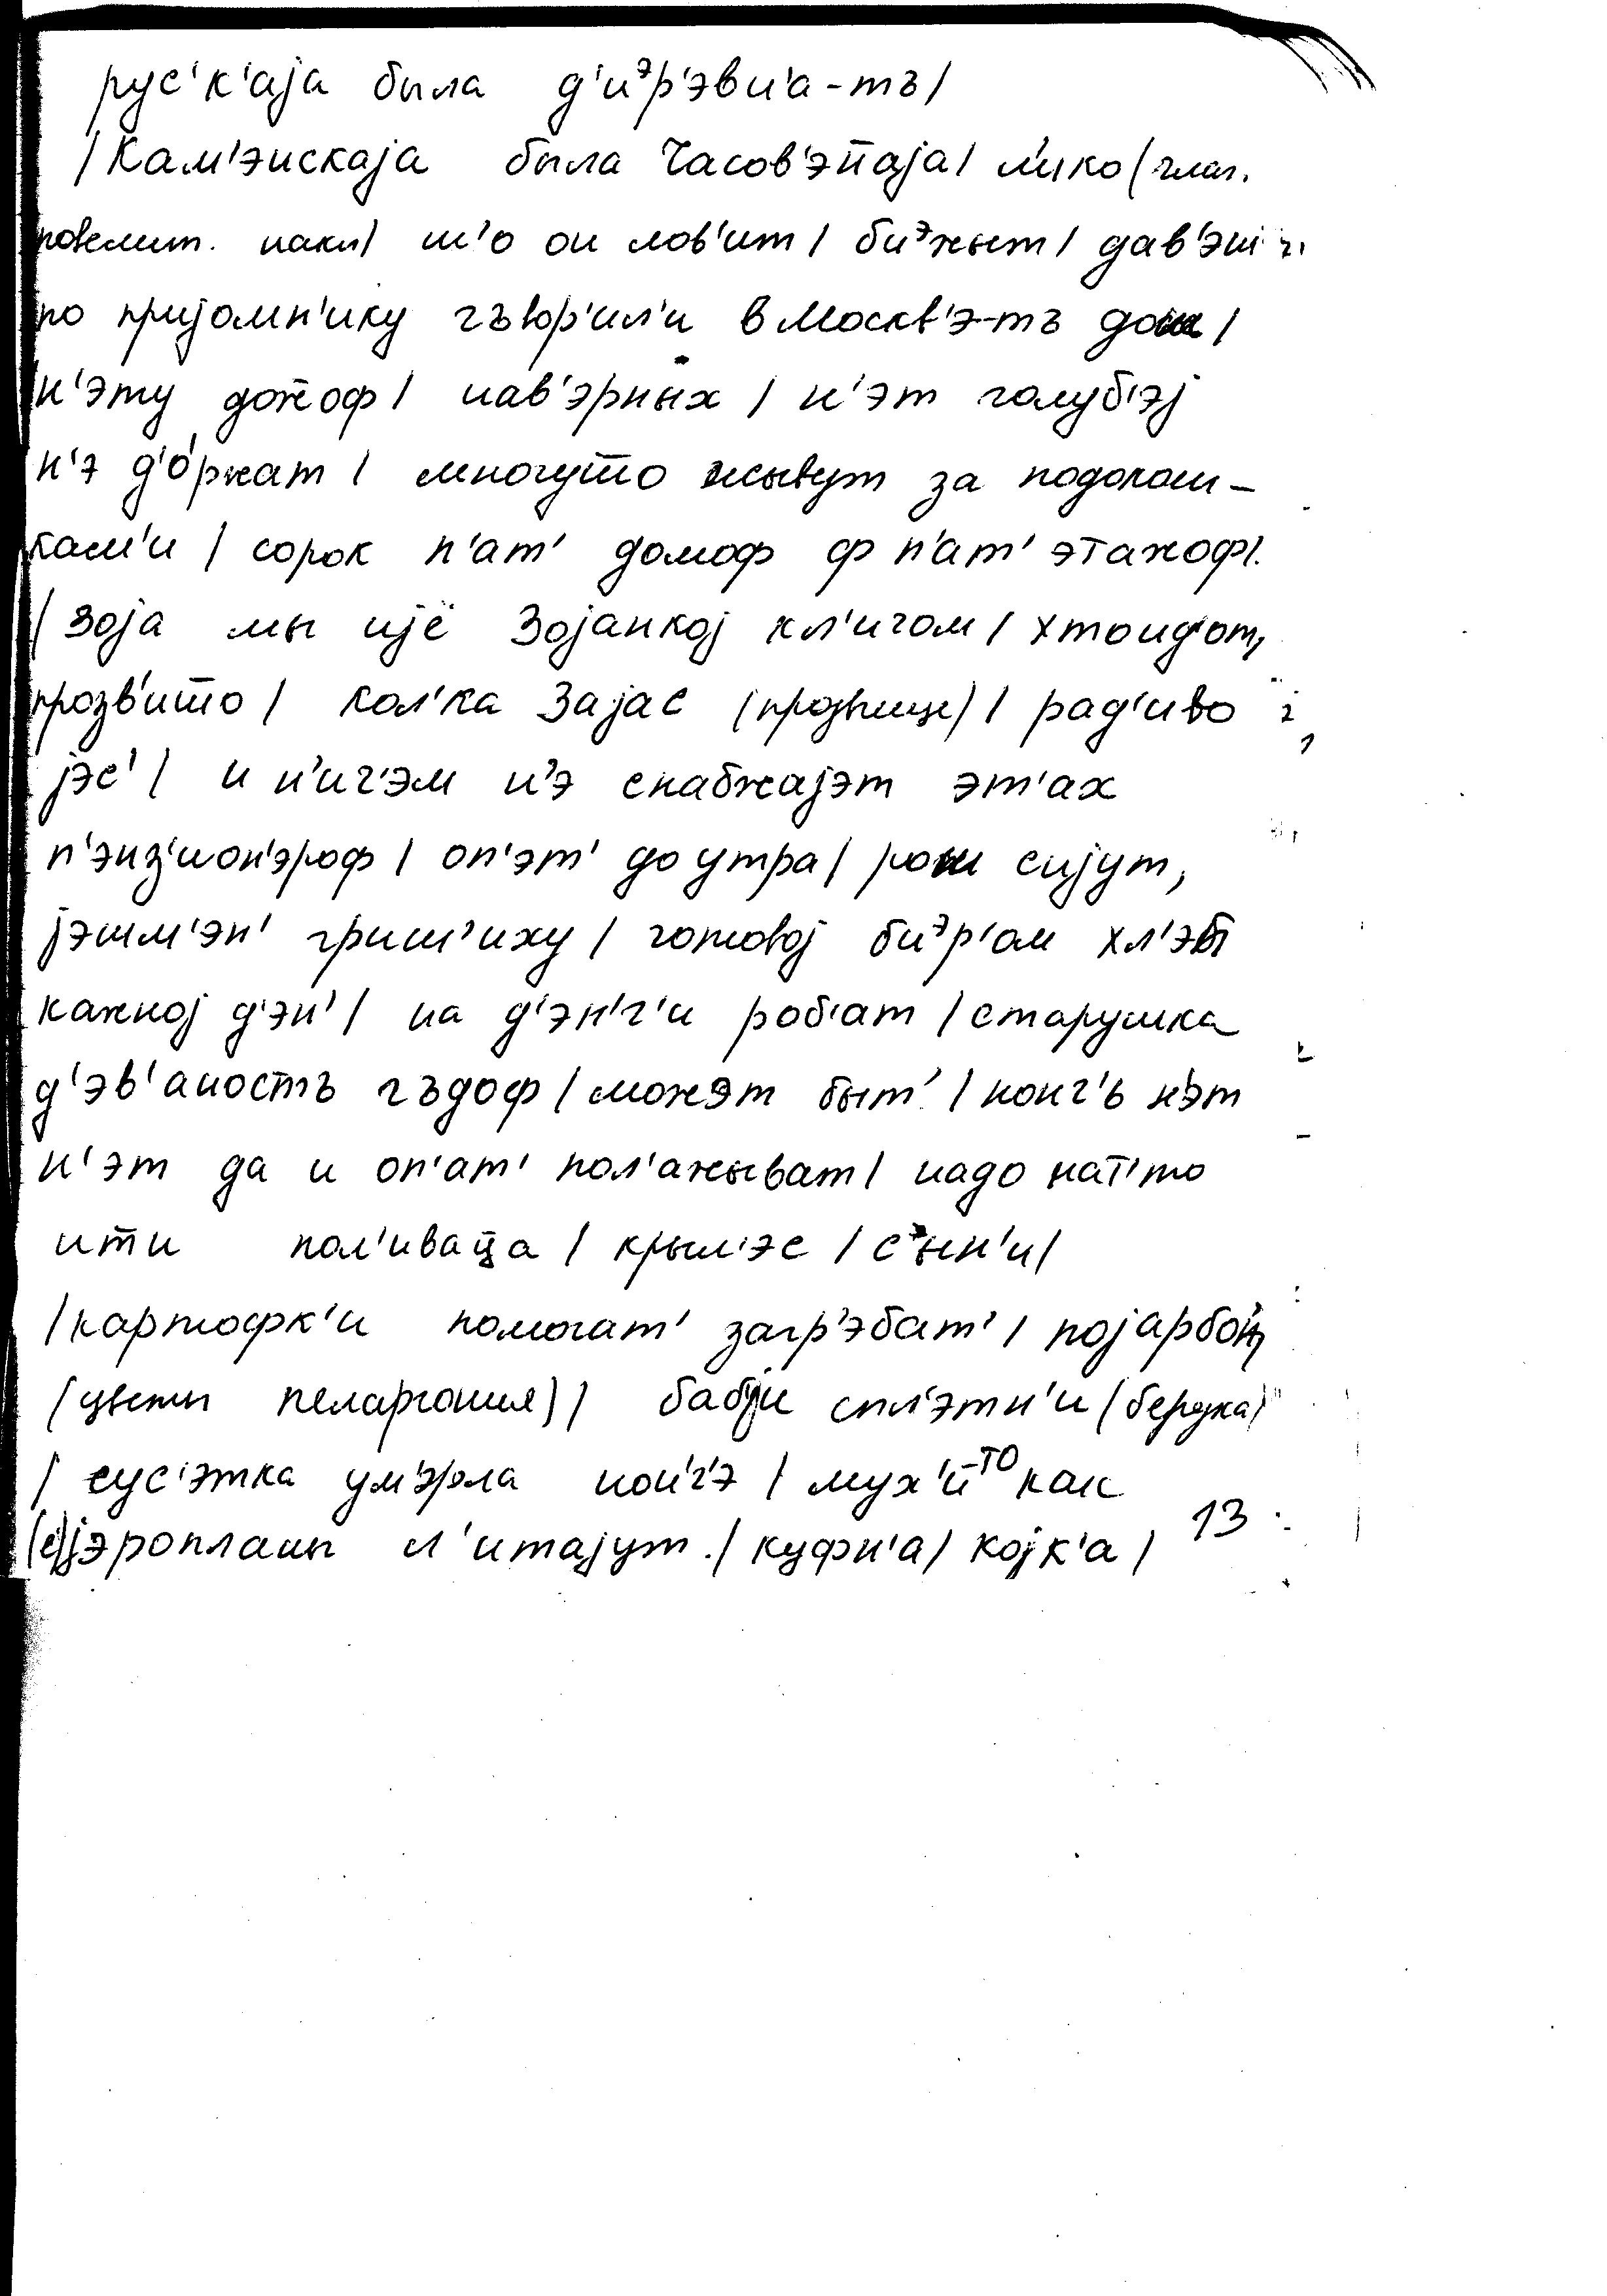 рус'к'аjа была д'иᵊр'эвн'а-тъ/
/Кам'энскаjа была Часов'э̄наjа/ л'ико (глаг.
повелит. накл/ ш'о он лов'ит/ биᵊжыт/ дав'эш'
по приjомн'ику гъвор'ил'и в Москв'э-тъ дош/
н'эту дожоф/ нав'эрных/ н'эт голуб'эj
н'э д'о́ржат/ многуто жывут за подокош-
кам'и/ сорок п'ат' домоф ф п'ат' этажоф/.
/Зоjа мы иjё Зоjанкоj кл'ичом/ хто ид'от,
прозв'ишшо/ кол'ка Заjас (прозвище)/ рад'иво
jэс'/ и н'ич'эм н'э снабжаjэт эт'ах
п'энз'ион'эроф/ оп'эт' до утра/ рош сиjут,
jэшм'эн' гриш'иху/ готовоj биᵊр'ом хл'эб
кажноj д'эн'/ на д'эн'г'и роб'ат/ старушка
д'эв'аностъ гъдоф/ можэт быт'/ нонч'ь н'эт
н'эт да и оп'ат' пол'ажыват/ надо нат'то
ити пол'иваца/ крыл'эс/ сᵊын'и/
/картофк'и помогат' загр'эбат'/
(цветы пеларгония)/ бабjи спл'этн'и (бередка)
/сус'этка ум'эрла нон'ч'э/ мух'и-то как
(а)jэропланы л'итаjут./ куфн'а/ коjк'а/ 13